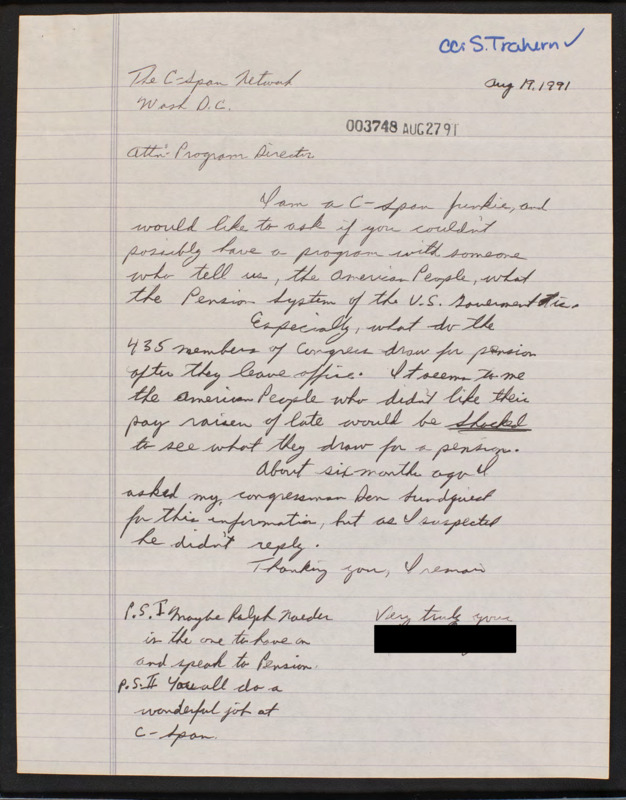 cc: S. Trahern ✓
Aug 19, 1991
The C-Span Network
Wash D.C.
003748 AUG 27 91
Attn: Program Director
I am a C-Span junkie, and
would like to ask if you couldn't
possibly have a program with someone
who tell us, the American People, what
the Pension System of the U.S. Government is.
Especially, what do the
435 members of Congress draw for pension
after they leave office. It seems to me
the American People who didn't like their
pay raises of late would be shocked
to see what they draw for a pension.
About six months ago I
asked my congressman Don Sundquist
for this information, but as I suspected
he didn't reply.
Thanking you, I remain
Very truly yours
P.S. I Maybe Ralph Naeder
is the one to have on
and speak to Pension.
P.S. II You all do a
wonderful job at
C-Span.